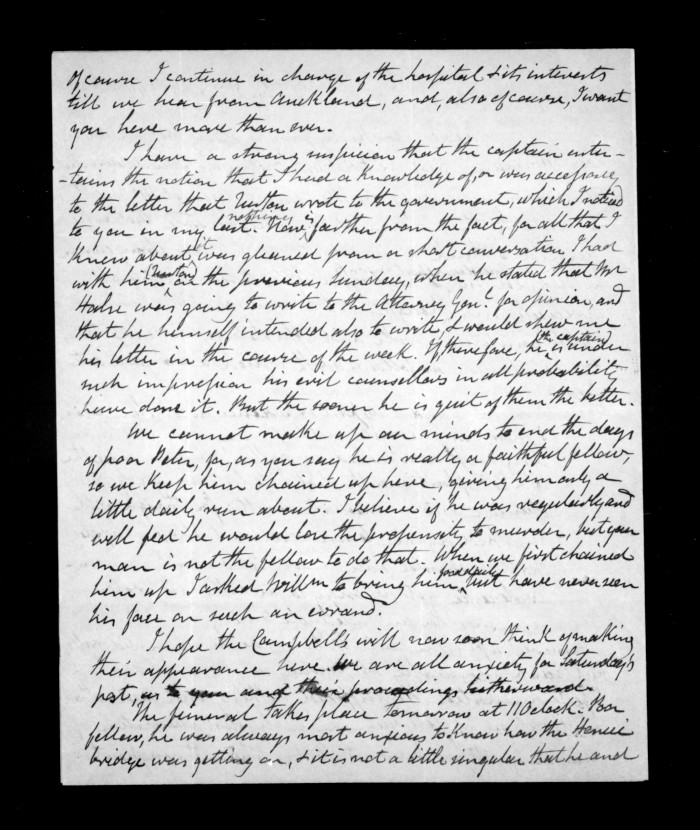 Of course I continue in charge of the hospital & its interests
till we hear from Auckland, and, also of course, I want
you here more than ever.
I have a strong suspicion that the captain enter-
-tains the notion that I had a knowledge of, or was accessory
to the letter that Newton wrote to the government, which I noticed
to you in my last. Now nothing is farther from the fact, for all that I
knew about it was gleaned from a short conversation I had
with him (Newton) on the previous Sunday, when he stated that Mr
Halse was going to write to the Attorney Genl. for opinion, and
that he himself intended also to write, & would shew me
his letter in the course of the week. If therefore, he (the captain) is under
such impression his evil counsellors in all probability
have done it. But the sooner he is quit of them the better.
We cannot make up our minds to end the days
of poor Peter, for, as you say he is really a faithful fellow,
so we keep him chained up here, giving him only a
little daily run about. I believe if he was regularly and
well fed he would lose the propensity to murder, but your
man is not the fellow to do that. When we first chained
him up I asked Willm to bring him food daily, but have never seen
his face on such an errand.
I hope the Campbells will now soon think of making
their appearance here. We are all anxiety for Saturday's
post, as to your and their proceedings hitherward.
The funeral takes place tomorrow at 11 Oclock. Poor
fellow, he was always most anxious to know how the Henui
bridge was getting on, & it is not a little singular that he and